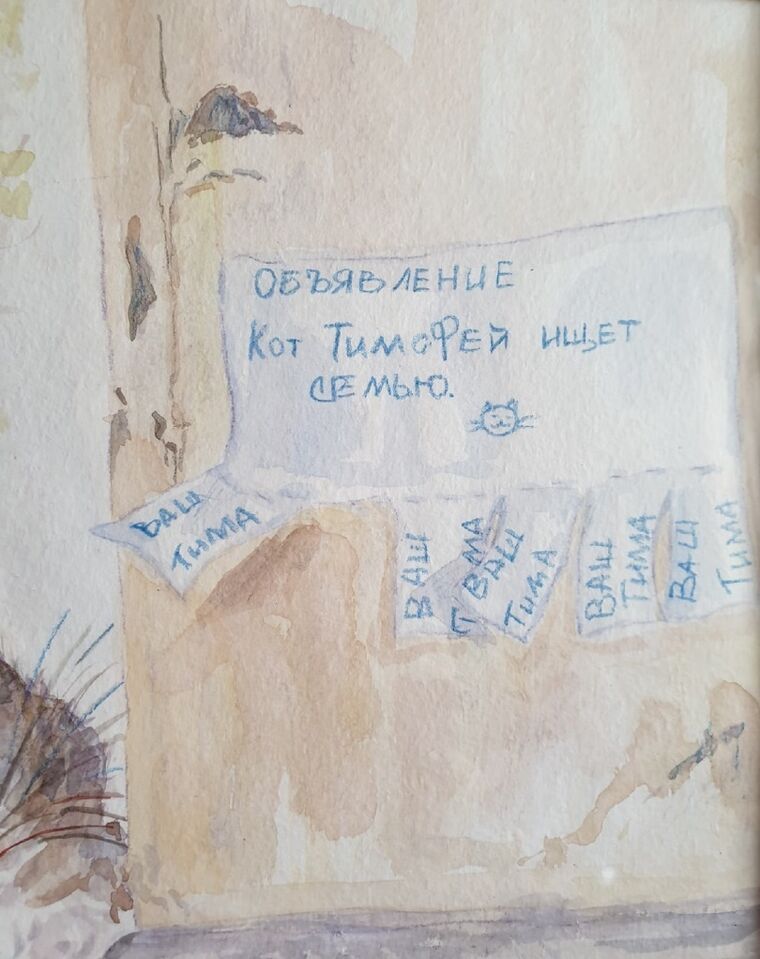 ОБЪЯВЛЕНИЕ
Кот Тимофей ищет
семью.
ВАШ
ТИМА
ВАШ
ТИМА
ВАШ
ТИМА
ВАШ
ТИМА
ВАШ
ТИМА